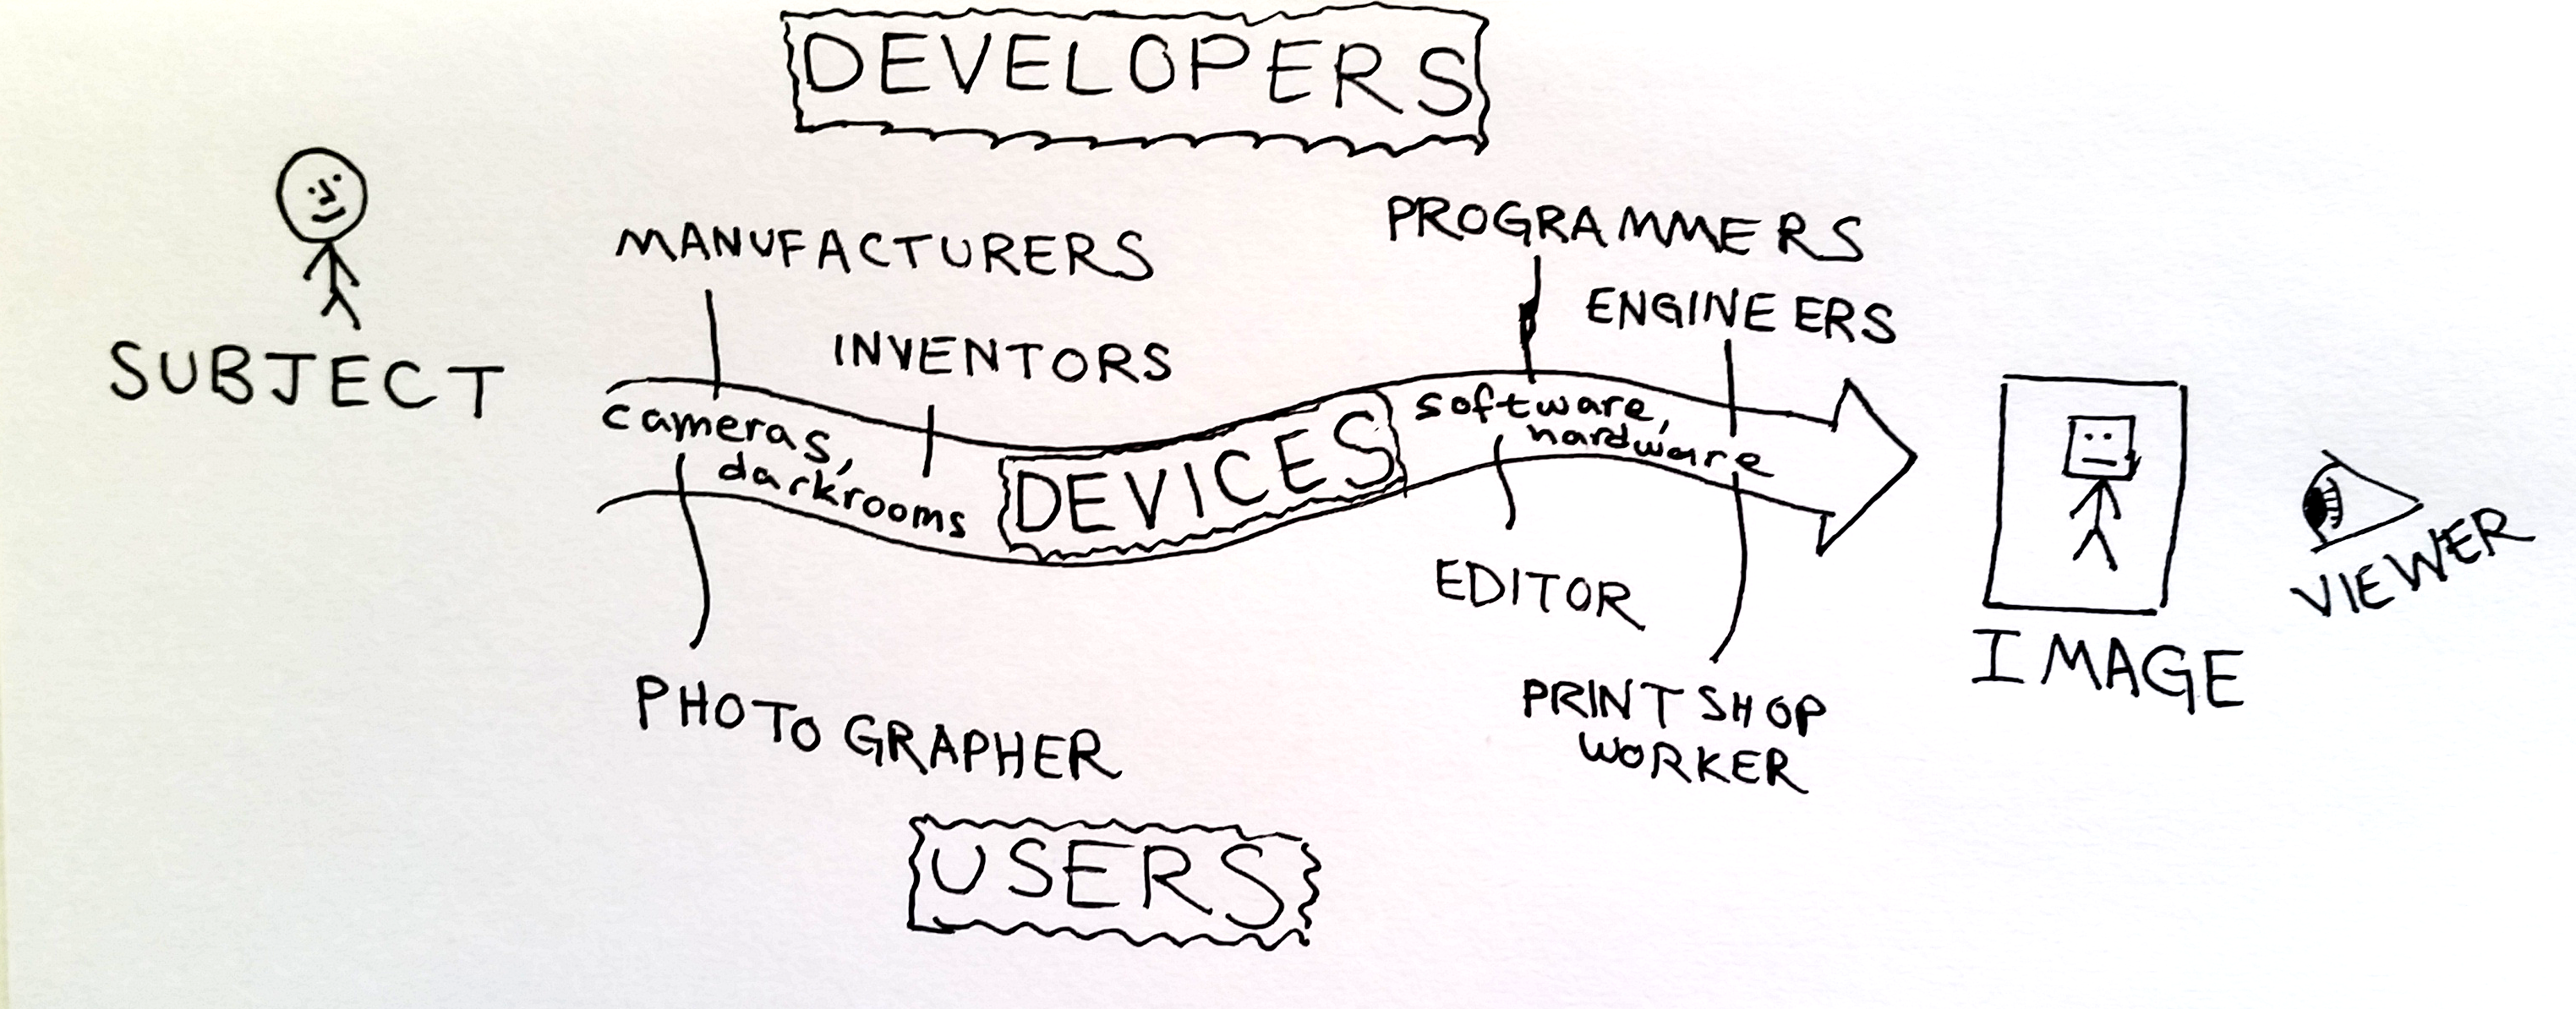 DEVELOPERS
SUBJECT
MANUFACTURERS
INVENTORS
PROGRAMMERS
ENGINEERS
cameras,
darkrooms
DEVICES
software,
hardware
PHOTOGRAPHER
EDITOR
PRINT SHOP
WORKER
IMAGE
VIEWER
USERS